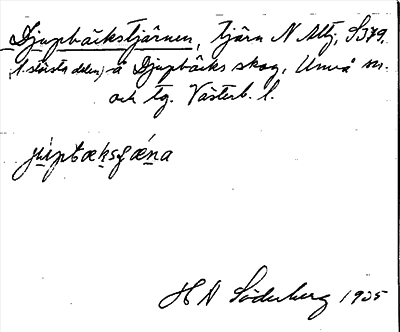 Djupbäckstjärnen, tjärn N Mtj, S379,
(t. största delen) å Djupbäcks skog, Umeå sn.
och tg. Västerb. l.
jupbæksçæna
H A Söderberg 1925